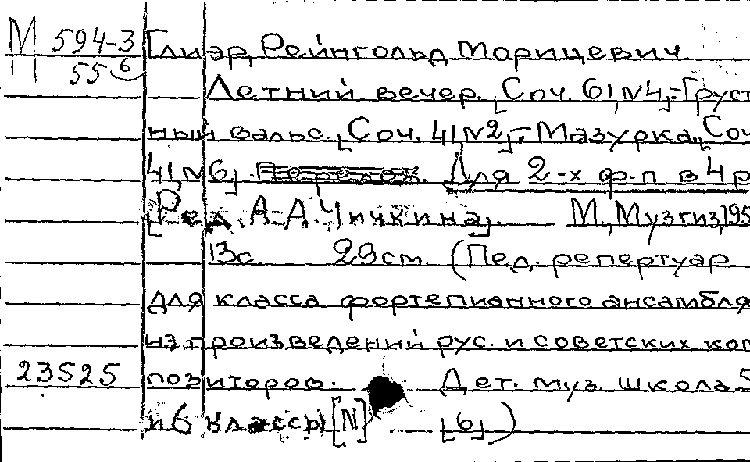 М 594-3 Глиэр, РейнгольдМорицевич
55 6
Летний вечер. [Соч. 61, №4].-Груст-
ный вальс. [Соч. 41, №2].-Мазурка. [Соч.
41, №6]. Для 2-х ф.-п. в 4 р
[Ред. А. А. Чичкина]. М., Музгиз, 195
13с. 29см. (Пед. репертуар
для класса фортепианного ансамбля
из произведений рус. и советских ком
23525 позиторов. Дет. муз. школа. 5
и 6 классы [N] [6])